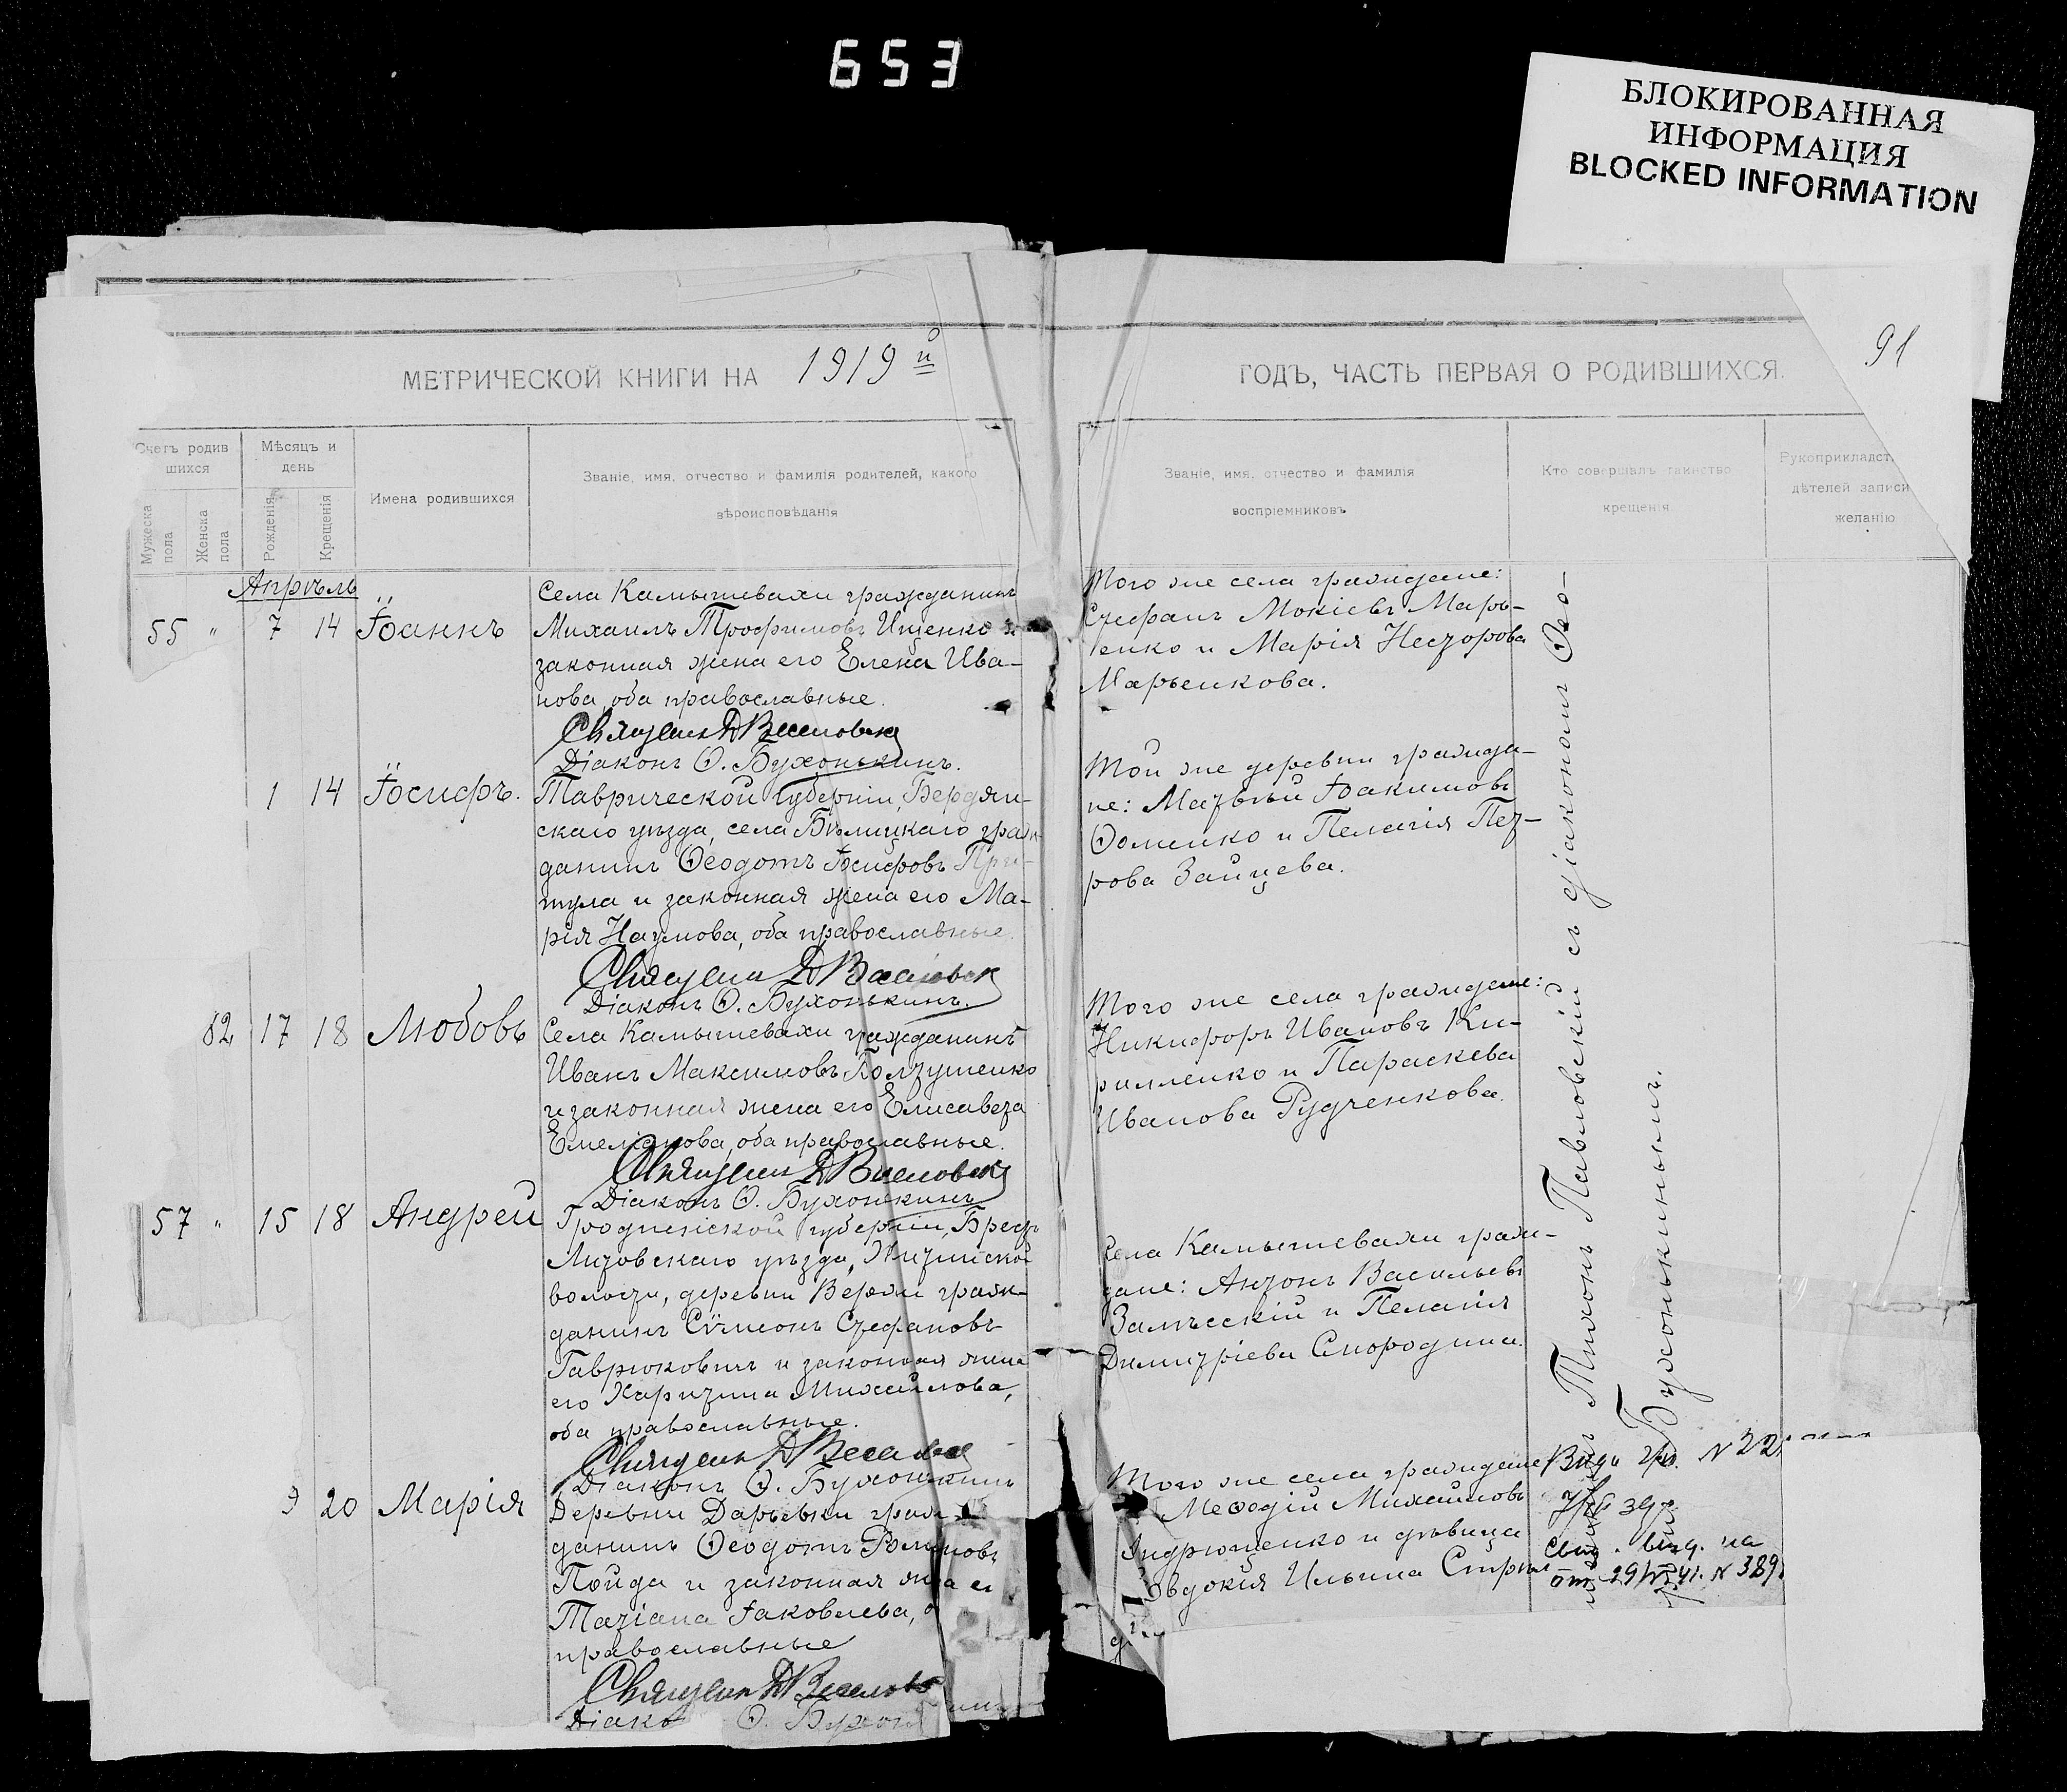 653
БЛОКИРОВАННАЯ
ИНФОРМАЦИЯ
BLOCKED INFORMATION
91
МЕТРИЧЕСКОЙ КНИГИ НА 1919й
ГОДЪ, ЧАСТЬ ПЕРВАЯ О РОДИВШИХСЯ.
Счетъ родив
шихся
Мужеска
пола
Женска
пола
Мѣсяцъ и
день
Рожденія
Крещенія
Имена родившихся
Званіе, имя, отчество и фамилія родителей, какого
вѣроисповѣданія
Званіе, имя, отчество и фамилія
воспріемниковъ
Кто совершалъ таинство
крещенія
Рукоприкладст
дѣтелей записи
желанію
Апрѣль
55 " 7 14 Іоаннъ
Села Камышевахи гражданинъ
Михаилъ Трофимовъ Ищенко и
законная жена его Елена Ива-
нова, оба православные.
Діаконъ Ѳ. Бухонькинъ.
Того же села граждане:
Стефанъ Мокіевъ Марь-
енко и Марія Несторова
Марьенкова.
1 14 Іосифъ.
Таврической губерніи, Бердян-
скаго уѣзда, села Бѣлицкаго граж-
данинъ Ѳеодотъ Іосифовъ При-
тула и законная жена его Ма-
рія Наумова, оба православные.
Діаконъ Ѳ. Бухонькинъ.
Той же деревни гражда-
не: Матвѣй Іоакимовъ
Ѳоменко и Пелагія Пет-
рова Зайцева.
82 17 18 Любовь
Села Камышевахи гражданинъ
Иванъ Максимовъ Болтушенко
и законная жена его Елисавета
Емеліанова, оба православные.
Діаконъ Ѳ. Бухонькинъ
Того же села граждане:
Никифоръ Ивановъ Ки-
рилленко и Параскева
Иванова Рудченкова.
57 " 15 18 Андрей
Гродненской губерніи, Брестъ
Литовскаго уѣзда,
волости, деревни граж-
данинъ Сѵмеонъ Стефановъ
Гаврюковичъ и законная жена
его Харитина Михайлова,
оба православные.
Діаконъ Ѳ. Бухонькинъ
Села Камышевахи граж-
дане: Антонъ Васильевъ
Залѣсскій и Пелагія
Димитріева Смородина.
20 Марія
Деревни Дарьевки граж-
данинъ Ѳеодотъ
Пойда и законная жена ег
Татіана Іаковлева, о
православные
Діако Ѳ. Бухон
Того же села граждане
Меѳодій Михайловъ
Андрющенко и дѣвица
Евдокія Ильина
Тихонъ Павловскій съ діакономъ Ѳео-
Бухонькинымъ.
от 29/ 41. N 389